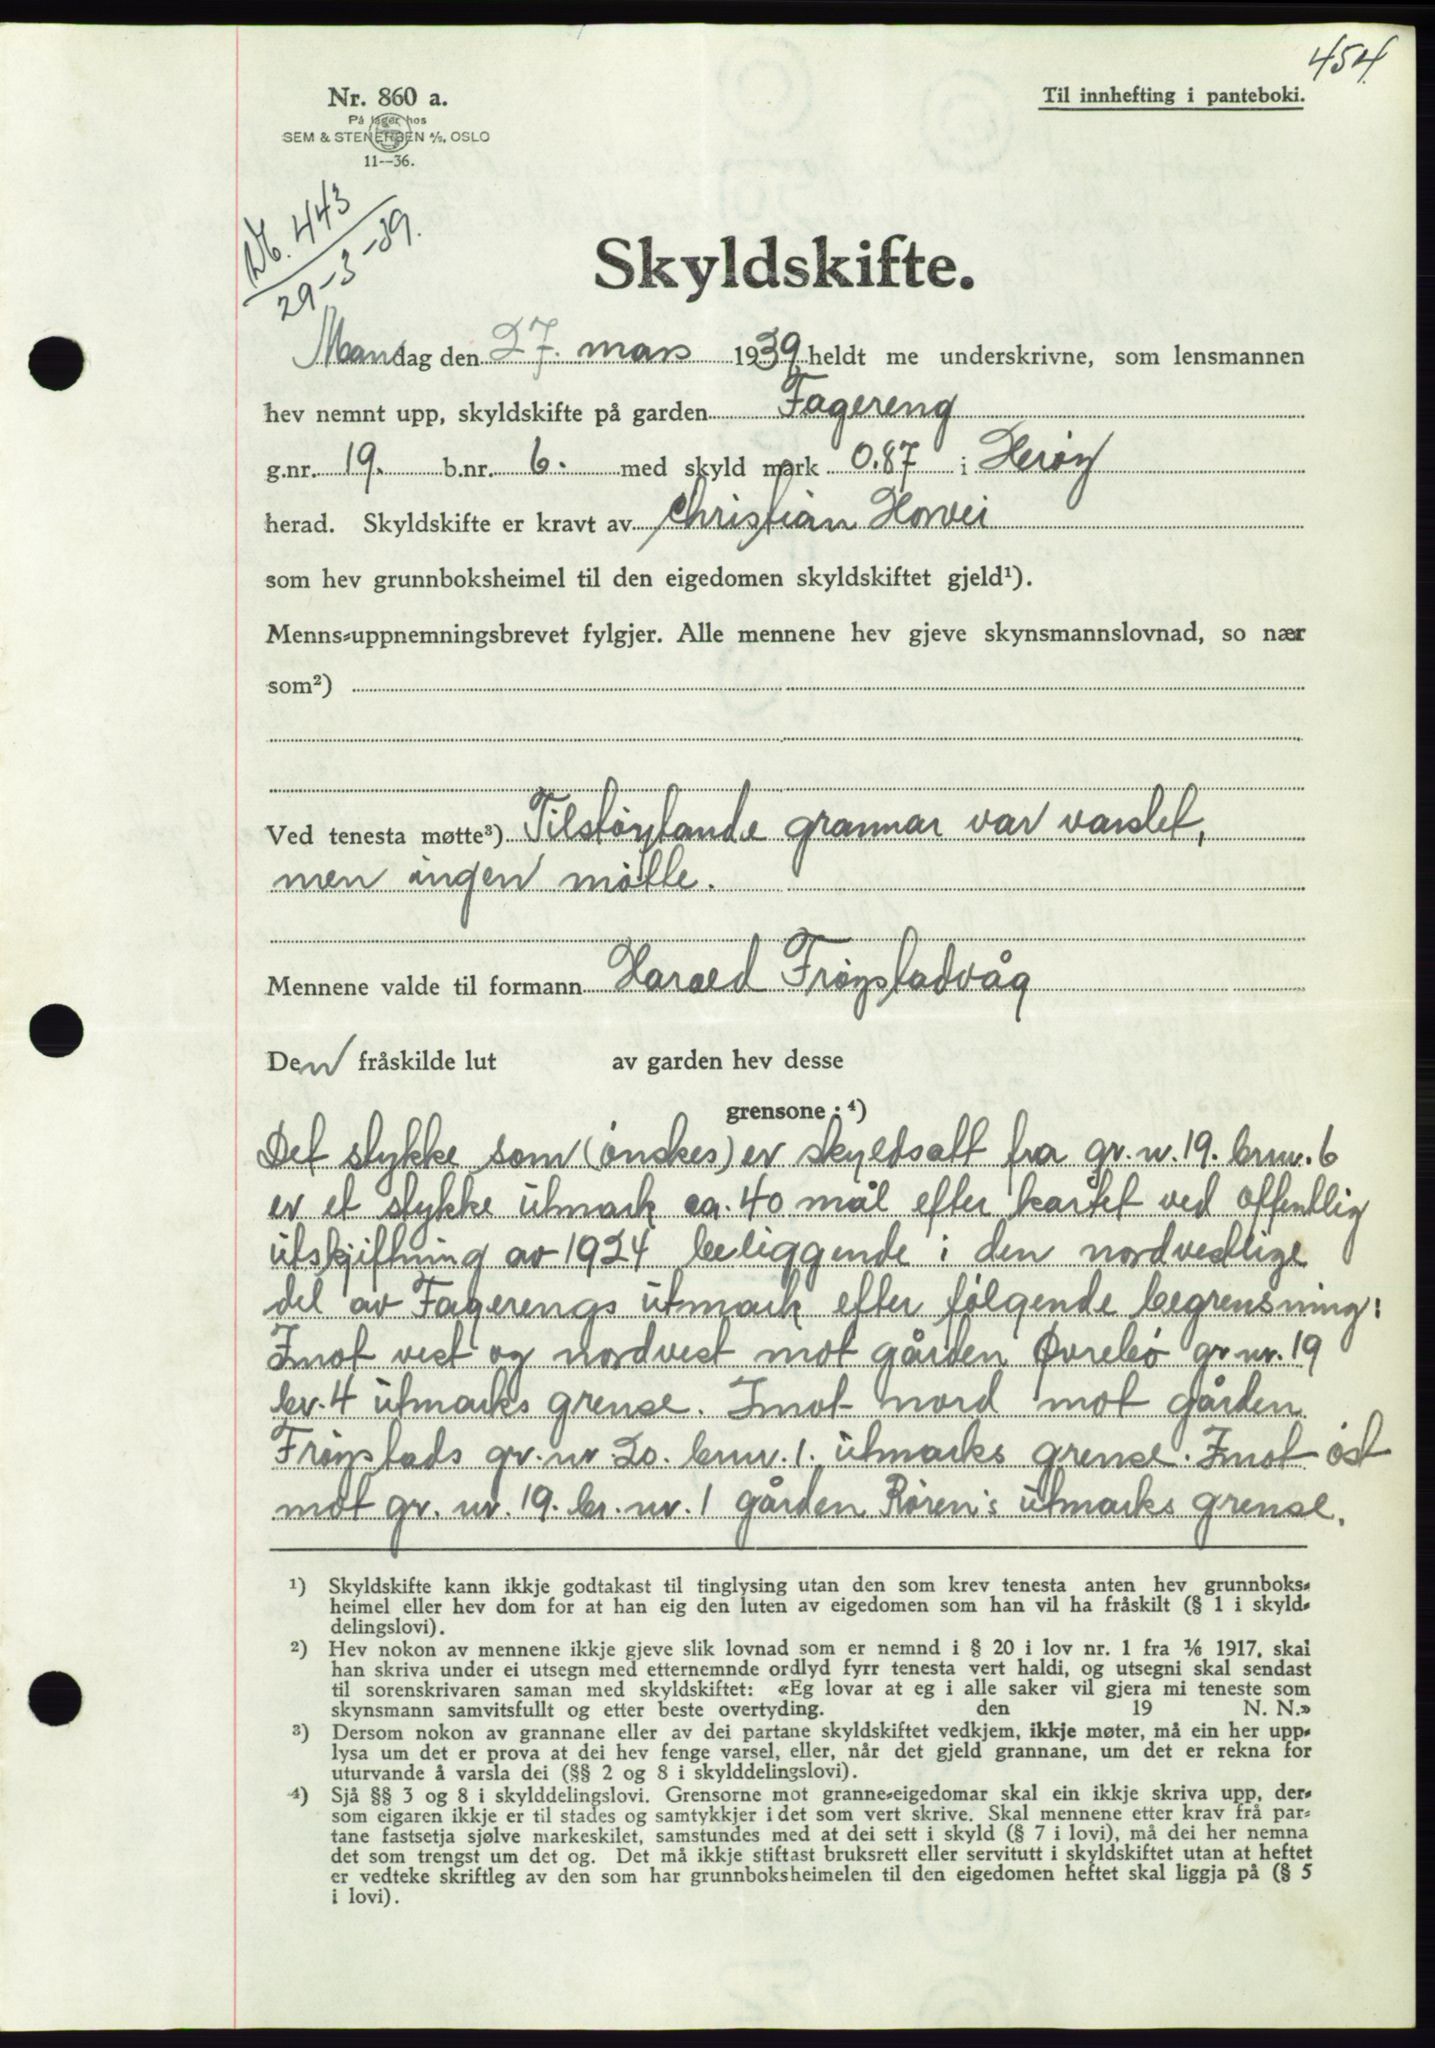 454.
Nr. 860 a.
Til innhefting i panteboki.
På lager hos
SEM & STENERSEN A/S, OSLO
11--36.
Nr. 443
29-3-39.
Skyldskifte.
Mandag den 27. mars 1939 heldt me underskrivne, som lensmannen
hev nemnt upp, skyldskifte på garden Fagereng
g.nr. 19. b.nr. 6. med skyld mark 0.87 i Herøy
herad. Skyldskifte er kravt av Christian Horvei
som hev grunnboksheimel til den eigedomen skyldskiftet gjeld¹).
Menns-uppnemningsbrevet fylgjer. Alle mennene hev gjeve skynsmannslovnad, so nær
som²)
Ved tenesta møtte³) Tilstøytande grannar var varslet,
men ingen møtte.
Mennene valde til formann Harald Frøystadvåg
Den fråskilde lut av garden hev desse
grensone: ⁴)
Det stykke som (ønskes) er skyldsatt fra gr.nr. 19. brnr. 6
er et stykke utmark ca. 40 mål efter kartet ved offentlig
utskjiftning av 1924 beliggende i den nordvestlige
del av Fagerengs utmark efter følgende begrensning:
Imot vest og nordvest mot gården Øvrebø gr.nr. 19
br. 4 utmarks grense. Imot nord mot gården
Frøystads gr.nr. 20. brnr. 1. utmarks grense. Imot øst
mot gr. nr. 19. br. nr. 1 gården Røren's utmarks grense.
¹) Skyldskifte kann ikkje godtakast til tinglysing utan den som krev tenesta anten hev grunnboks-
heimel eller hev dom for at han eig den luten av eigedomen som han vil ha fråskilt (§ 1 i skyld-
delingslovi).
²) Hev nokon av mennene ikkje gjeve slik lovnad som er nemnd i § 20 i lov nr. 1 fra 1/6 1917, skal
han skriva under ei utsegn med etternemnde ordlyd fyrr tenesta vert haldi, og utsegni skal sendast
til sorenskrivaren saman med skyldskiftet: «Eg lovar at eg i alle saker vil gjera mi teneste som
skynsmann samvitsfullt og etter beste overtyding. den 19 N. N.»
³) Dersom nokon av grannane eller av dei partane skyldskiftet vedkjem, ikkje møter, må ein her upp-
lysa um det er prova at dei hev fenge varsel, eller, når det gjeld grannane, um det er rekna for
uturvande å varsla dei (§§ 2 og 8 i skylddelingslovi).
⁴) Sjå §§ 3 og 8 i skylddelingslovi. Grensorne mot granne-eigedomar skal ein ikkje skriva upp, der-
som eigaren ikkje er til stades og samtykkjer i det som vert skrive. Skal mennene etter krav frå par-
tane fastsetja sjølve markeskilet, samstundes med at dei sett i skyld (§ 7 i lovi), må dei her nemna
det som trengst um det og. Det må ikkje stiftast bruksrett eller servitutt i skyldskiftet utan at heftet
er vedteke skriftleg av den som har grunnboksheimelen til den eigedomen heftet skal liggja på (§ 5
i lovi).